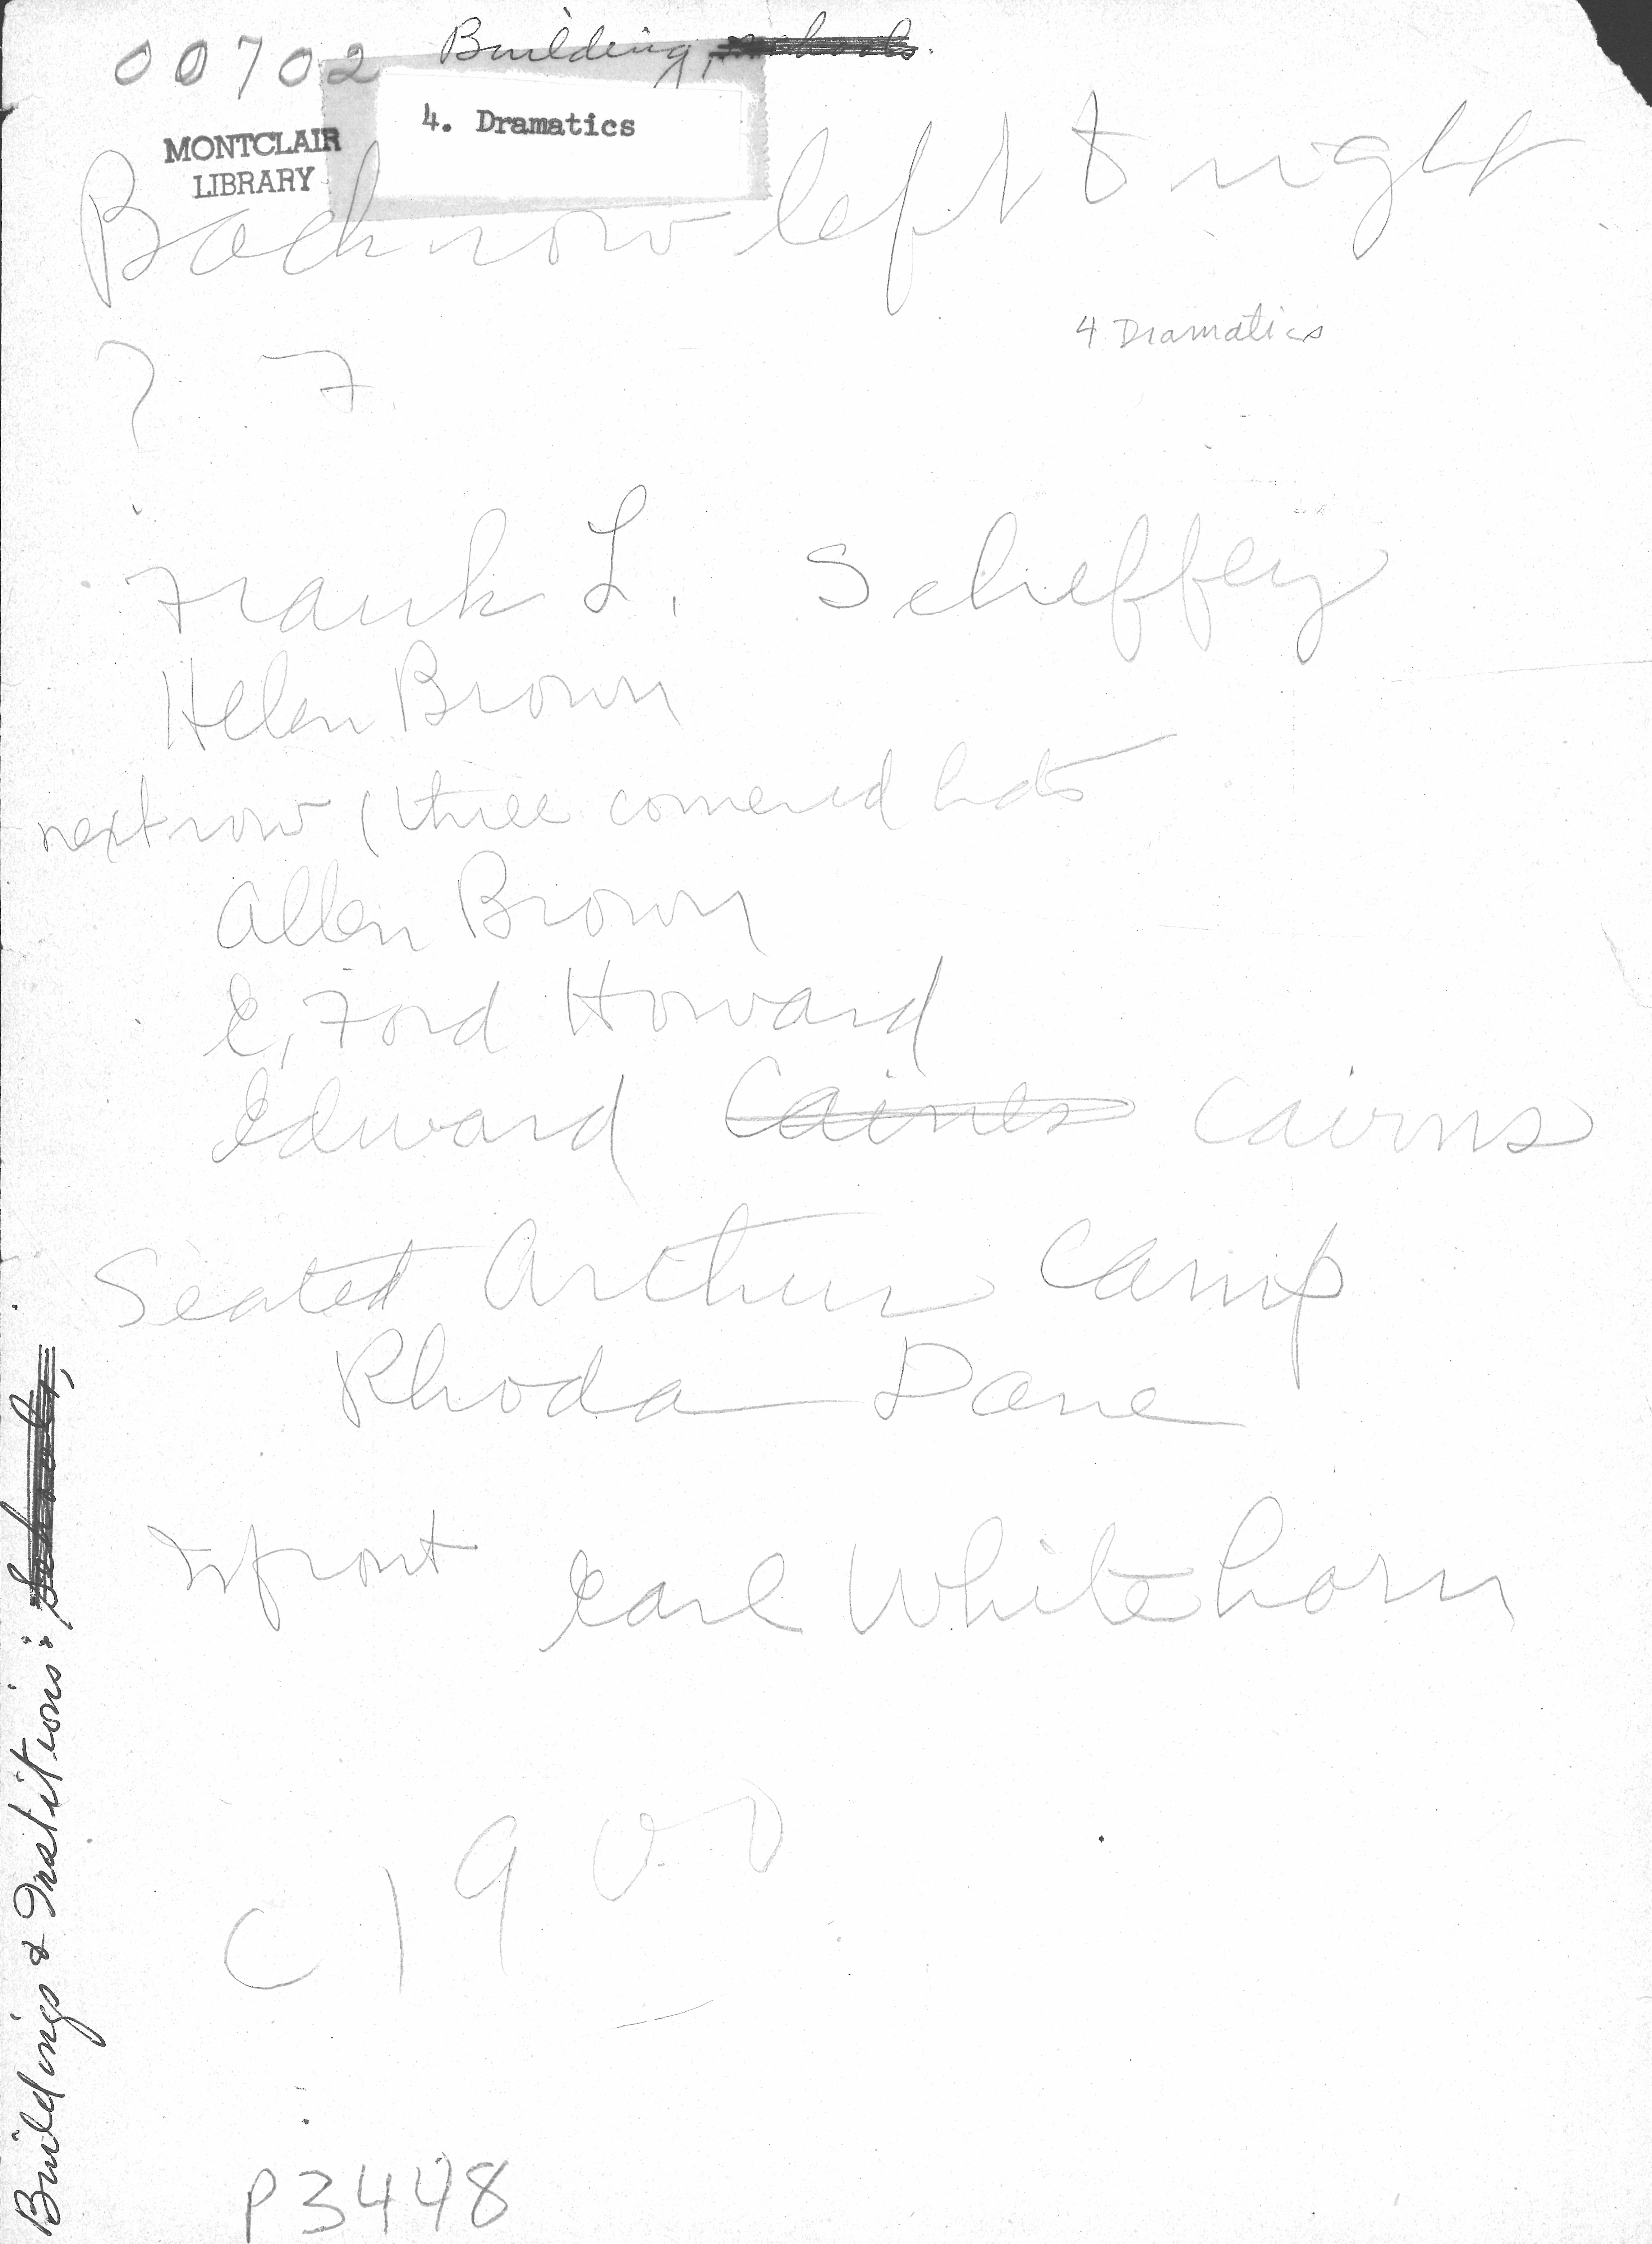 00702 Building, schools.
4. Dramatics
MONTCLAIR
LIBRARY
Back row left to right
4 Dramatics
? ?
Frank L. Scheffey
Helen Brown
next row (three cornered hats
Allen Brown
E, Ford Howard
Edward Caines Cairns
Seated Arthur Camp
Rhoda Dane
In front Earl Whitehorn
C 1900
P3448
Buildings & Institions: schools,